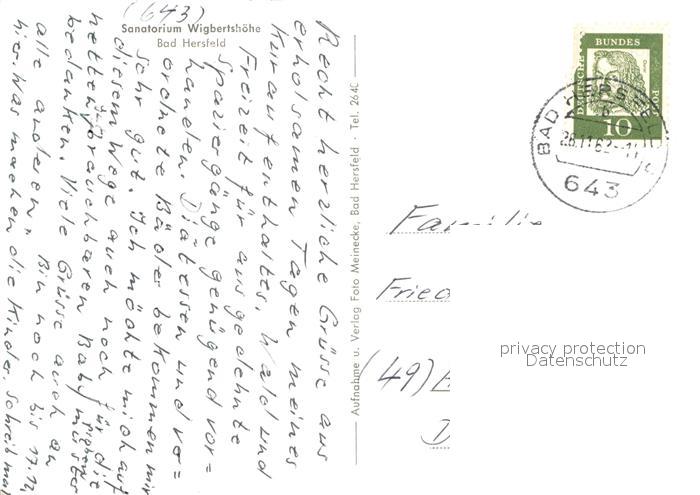 (643)
Sanatorium Wigbertshöhe
Bad Hersfeld
Recht herzliche Grüsse aus
erholsamen Tagen meines
Kuraufenthaltes. Wald und
Freizeit für ausgedehnte
Spaziergänge genügend vor=
handen. Diätessen und ver=
ordnete Bäder bekommen mir
sehr gut. Ich möchte mich auf
diesem Wege auch noch für die
netten, brauchbaren Baby
bedanken. Viele Grüsse auch an
alle anderen. Bin noch bis 17.12.
hier. Was machen die Kinder. Schreib mal
Aufnahme u. Verlag Foto Meinecke, Bad Hersfeld · Tel. 2640
DEUTSCHE
BUNDES
POST
Dürer
10
BAD HERSFELD
28.11.62
643
Familie
Fried
(49)
privacy protection
Datenschutz